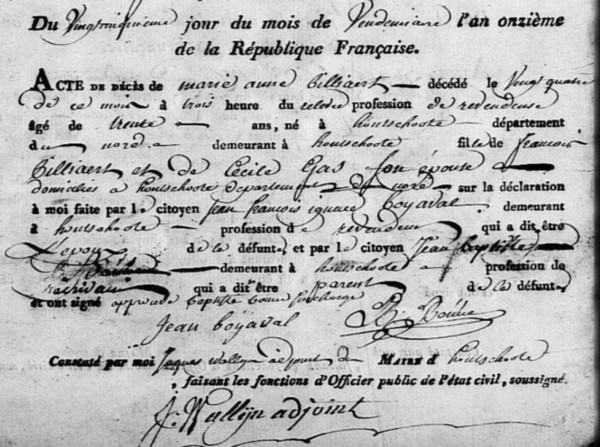 Du Vingtcinquieme jour du mois de Vendemiaire l'an onzième
de la République Française.
ACTE DE DÉCÈS de marie anne Billiaert décédé le Vingt quatre
de ce mois à trois heure du profession de revendeuse
âgé de trente ans, né à hontschoote département
du nord demeurant à hontschoote fille de francois
Billiaert et de Cecile Gas son épouse
domiciliés a hontschoote Departement du nord sur la déclaration
à moi faite par le citoyen Jean francois ignace Boyaval demeurant
à hontschoote profession de revendeur qui a dit être
L'epoux de la défunte, et par le citoyen Jean baptiste
Bonne demeurant à hontschoote profession de
ecrivain qui a dit être parent de la défunte
et ont signé approuvé Baptiste Bonne surcharge
Jean Boyaval B. Bonne
Constaté par moi Jaques Wallyn adjoint du MAIRE d hontschoote
, faisant les fonctions d'Officier public de l'état civil, soussigné.
J: Wallyn adjoint